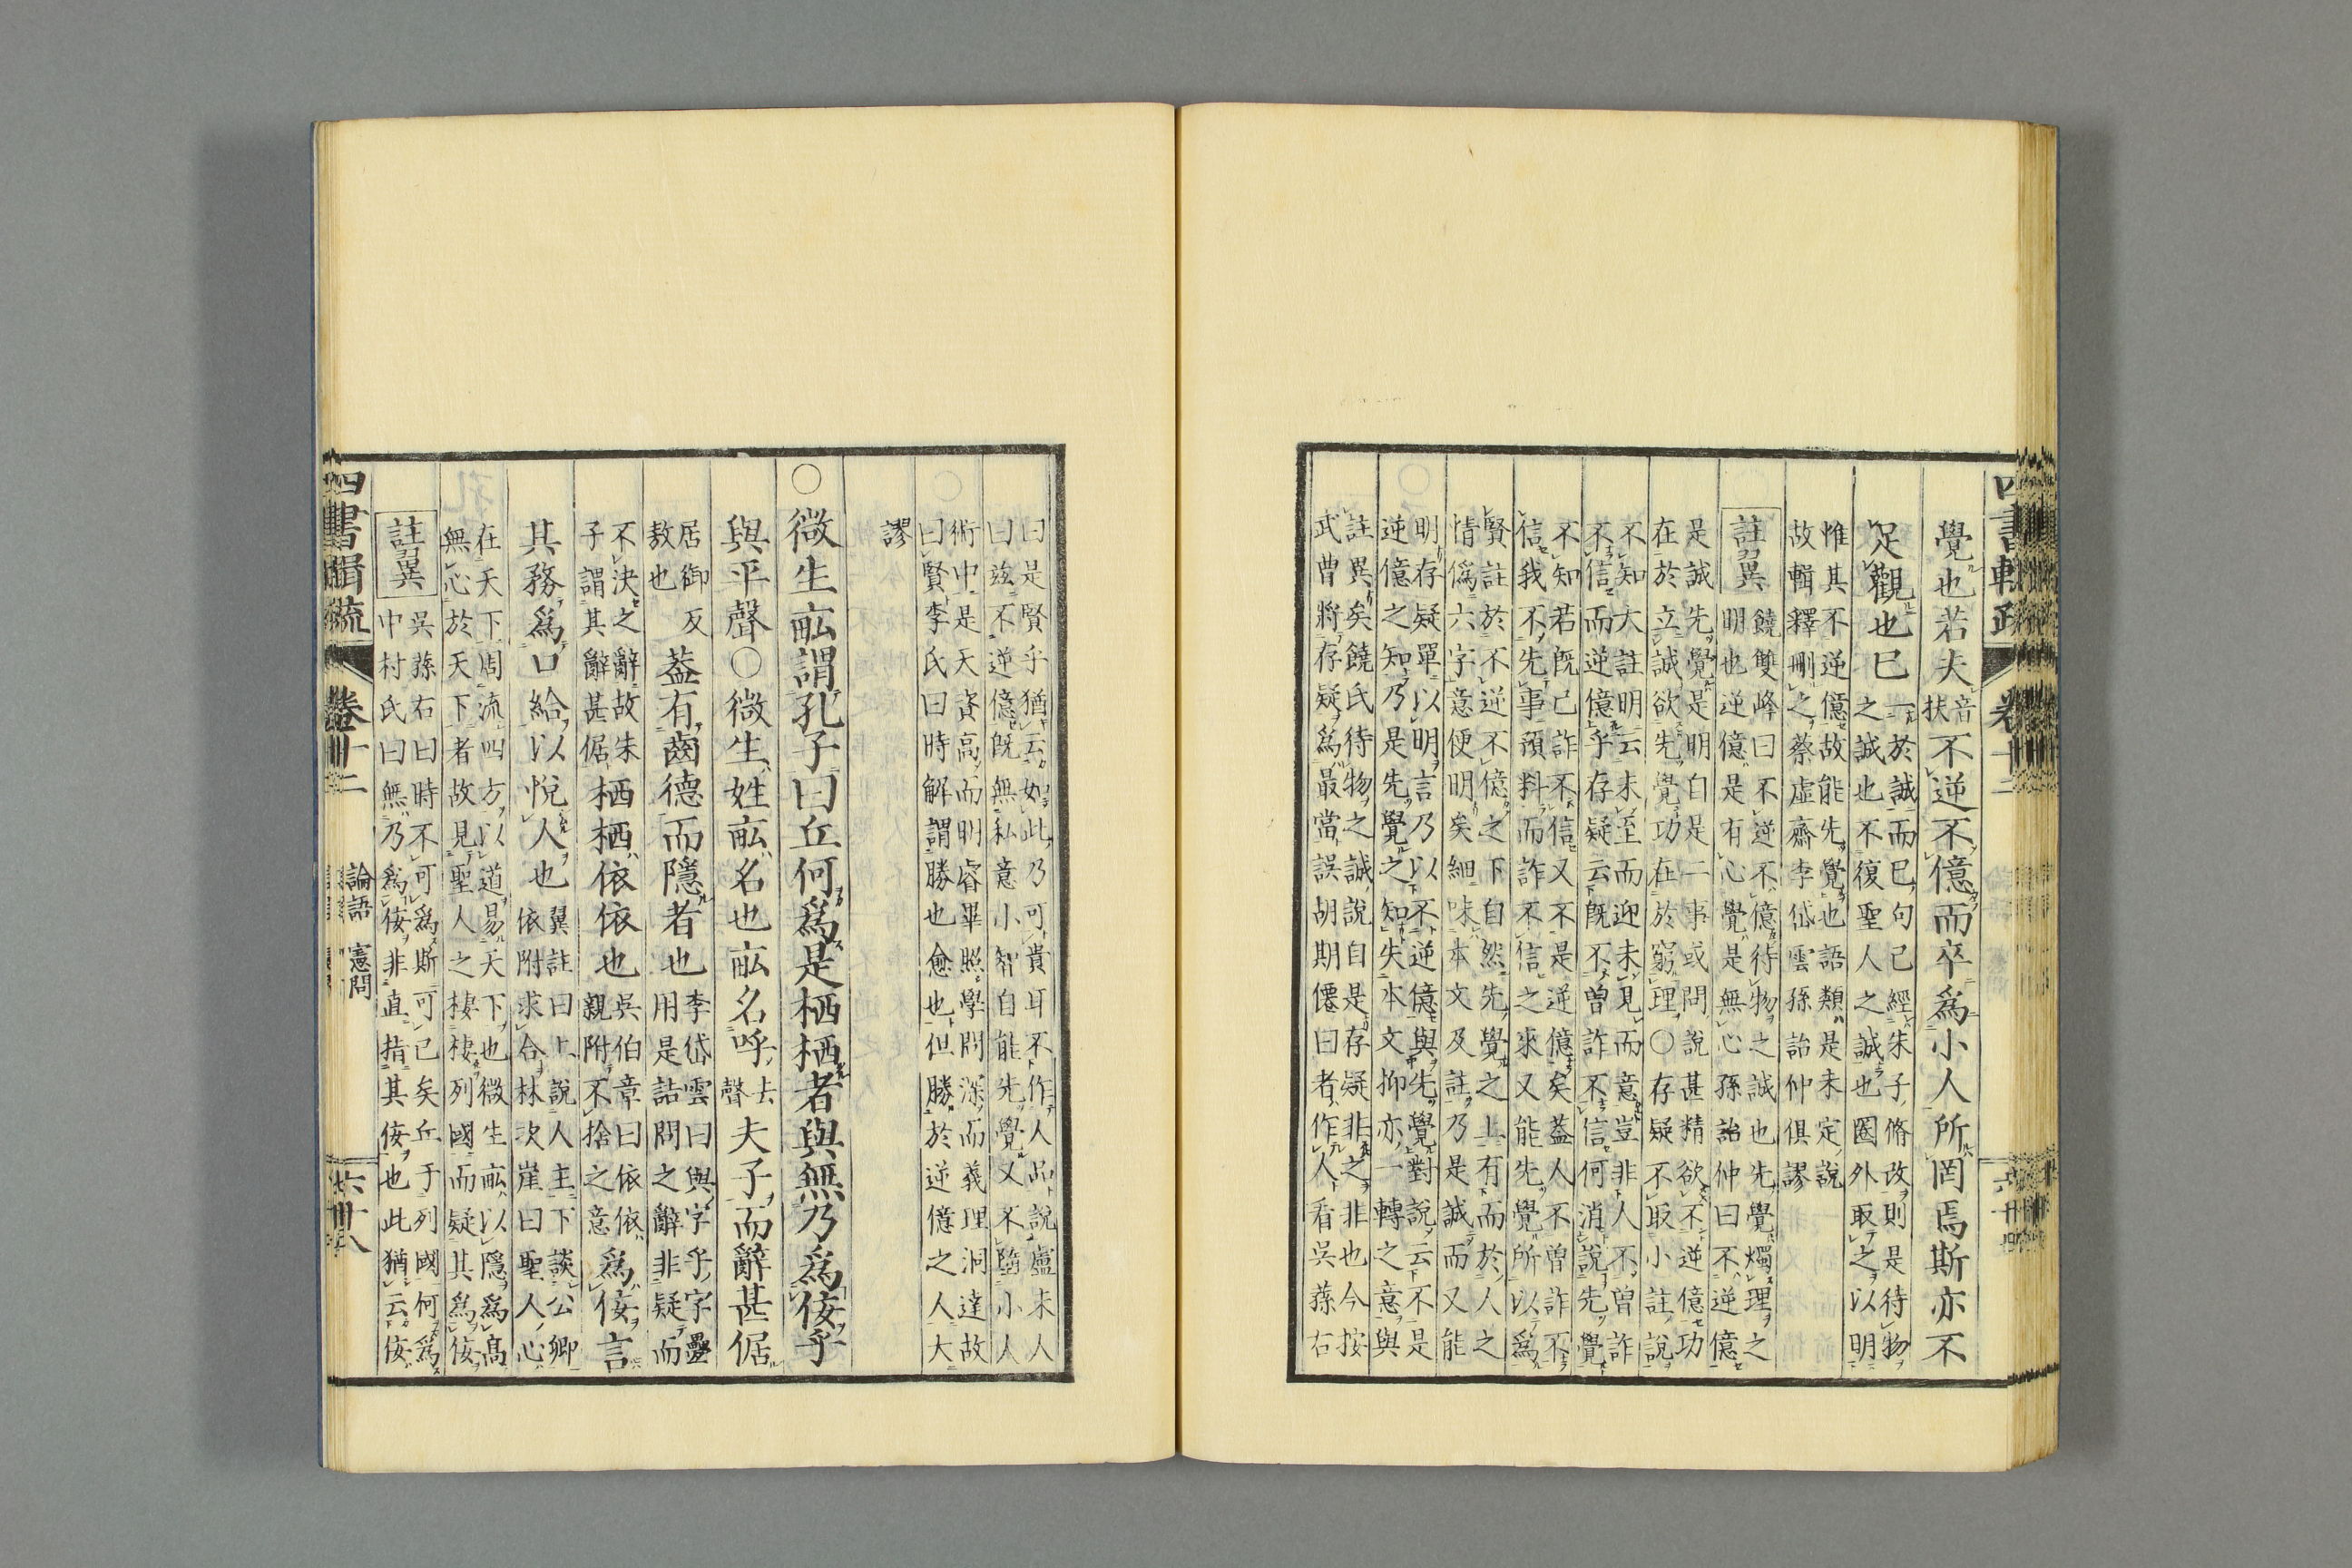 四書輯疏
卷十二
覺也若夫音扶不逆不億而卒為小人所罔焉斯亦不
足觀也已一於誠而已句已經朱子脩改則是待物
之誠也不復聖人之誠也圏外取之以明
惟其不逆億故能先覺也語類是未定說
故輯釋刪之蔡虛齋李岱雲孫詒仲俱謬
註翼饒雙峰曰不逆不億待物之誠也先覺燭理之
明也逆億是有心覺是無心孫詒仲曰不逆億
是誠先覺是明白是二事或問說甚精欲不逆億功
在於立誠欲先覺功在於窮理○存疑不取小註說
不知大註明云未至而迎未見而意豈非人不曾詐
不信而逆億乎存疑云既不曾詐不信何消說先覺
不知若既已詐不信又不是逆億矣蓋人不曾詐不
信我不先事預料而詐不信之來又能先覺所以為
賢註於不逆不億之下自然先覺之上有而於人之
情偽六字意便明矣細味本文及註乃是誠而又能
明存疑單以明言乃以不逆億與先覺對說云不是
逆億之知乃是先覺之知失本文抑亦一轉之意與
註異矣饒氏待物之誠說自是存疑非之非也今按
武曹將存疑為最當誤胡期僊曰者作人看吳蓀右
曰是賢乎猶云如此乃可貴耳不作人品說盧未人
曰玆不逆億既無私意小智自能先覺又不墮小人
術中是天資高而明睿畢照學問深而義理洞達故
曰賢李氏曰時解謂勝也愈也但勝於逆億之人大
謬
○微生畝謂孔子曰丘何為是栖栖者與無乃為佞乎
與平聲○微生姓畝名也畝名呼去聲夫子而辭甚倨
居御反敖也蓋有齒德而隱者也李岱雲曰與字乎字疊用是詰問之辭非疑而
不決之辭故朱子謂其辭甚倨栖栖依依也吳伯章曰依依親附不捨之意為佞言
其務為口給以悅人也翼註曰上說人主下談公卿依附求合林次崖曰聖人心
在天下周流四方以道易天下也微生畝以隱為高
無心於天下者故見聖人之棲棲列國而疑其為佞
註翼吳蓀右曰時不可為斯可已矣丘于列國何為
中村氏曰無乃為佞非直指其佞也此猶云佞
四書輯疏
卷十二
論語 憲問
六十八